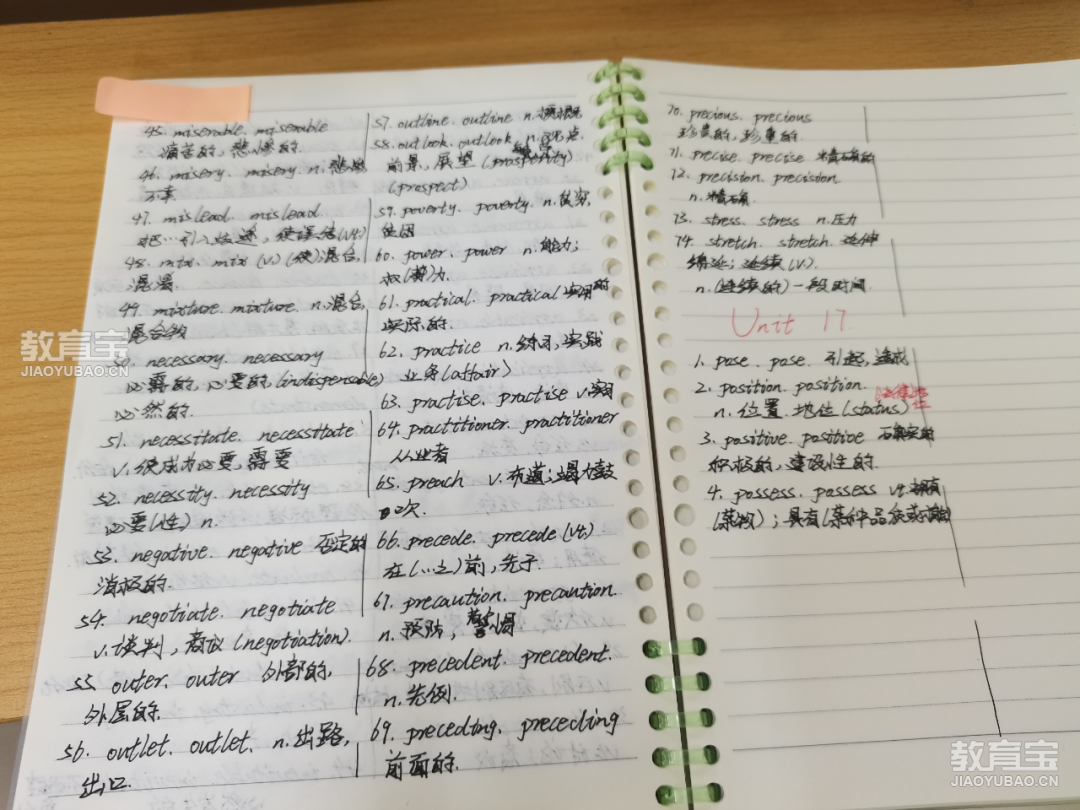 45. miserable. miserable
痛苦的, 悲惨的
46. misery. misery. n. 悲惨
不幸
47. mislead. mislead
把…引入歧途, 使误信(vt.)
48. mix. mix (v.) (使)混合,
混淆
49. mixture. mixture. n. 混合,
混合物
50. necessary. necessary
必需的, 必要的, (indispensable)
必然的.
51. necessitate. necessitate
v. 使成为必要, 需要
52. necessity. necessity
必要(性) n.
53. negative. negative 否定的
消极的.
54. negotiate. negotiate
v. 谈判, 商议 (negotiation).
55 outer. outer 外部的,
外层的.
56. outlet. outlet. n. 出路,
出口.
57. outline. outline n.
58. outlook. outlook n. 观点
前景, 展望 (prosperity)
(prospect)
59. poverty. poverty. n. 贫穷,
贫困
60. power. power n. 能力;
权(势)力.
61. practical. practical 实用的
实际的.
62. practice n. 练习, 实践
业务(affair)
63. practise. practise v. 实习
64. practitioner. practitioner
从业者
65. preach v. 布道; 竭力鼓
吹.
66. precede. precede (vt.)
在(…之)前, 先于.
67. precaution. precaution.
n. 预防, 警惕
68. precedent. precedent.
n. 先例.
69. preceding. preceding
前面的.
70. precious. precious
珍贵的, 珍重的.
71. precise. precise 精确的
72. precision. precision.
n. 精确.
73. stress. stress n. 压力
74. stretch. stretch. 延伸
绵延; 延续(v.)
n. (连续的)一段时间.
Unit 17.
1. pose. pose. 引起, 造成
2. position. position.
n. 位置. 地位 (status)
3. positive. positive 确实的
积极的, 建设性的.
4. possess. possess vt. 拥有
(某物); 具有(某种品质或
教育宝
JIAOYUBAO.CN
教育宝
JIAOYUBAO.CN